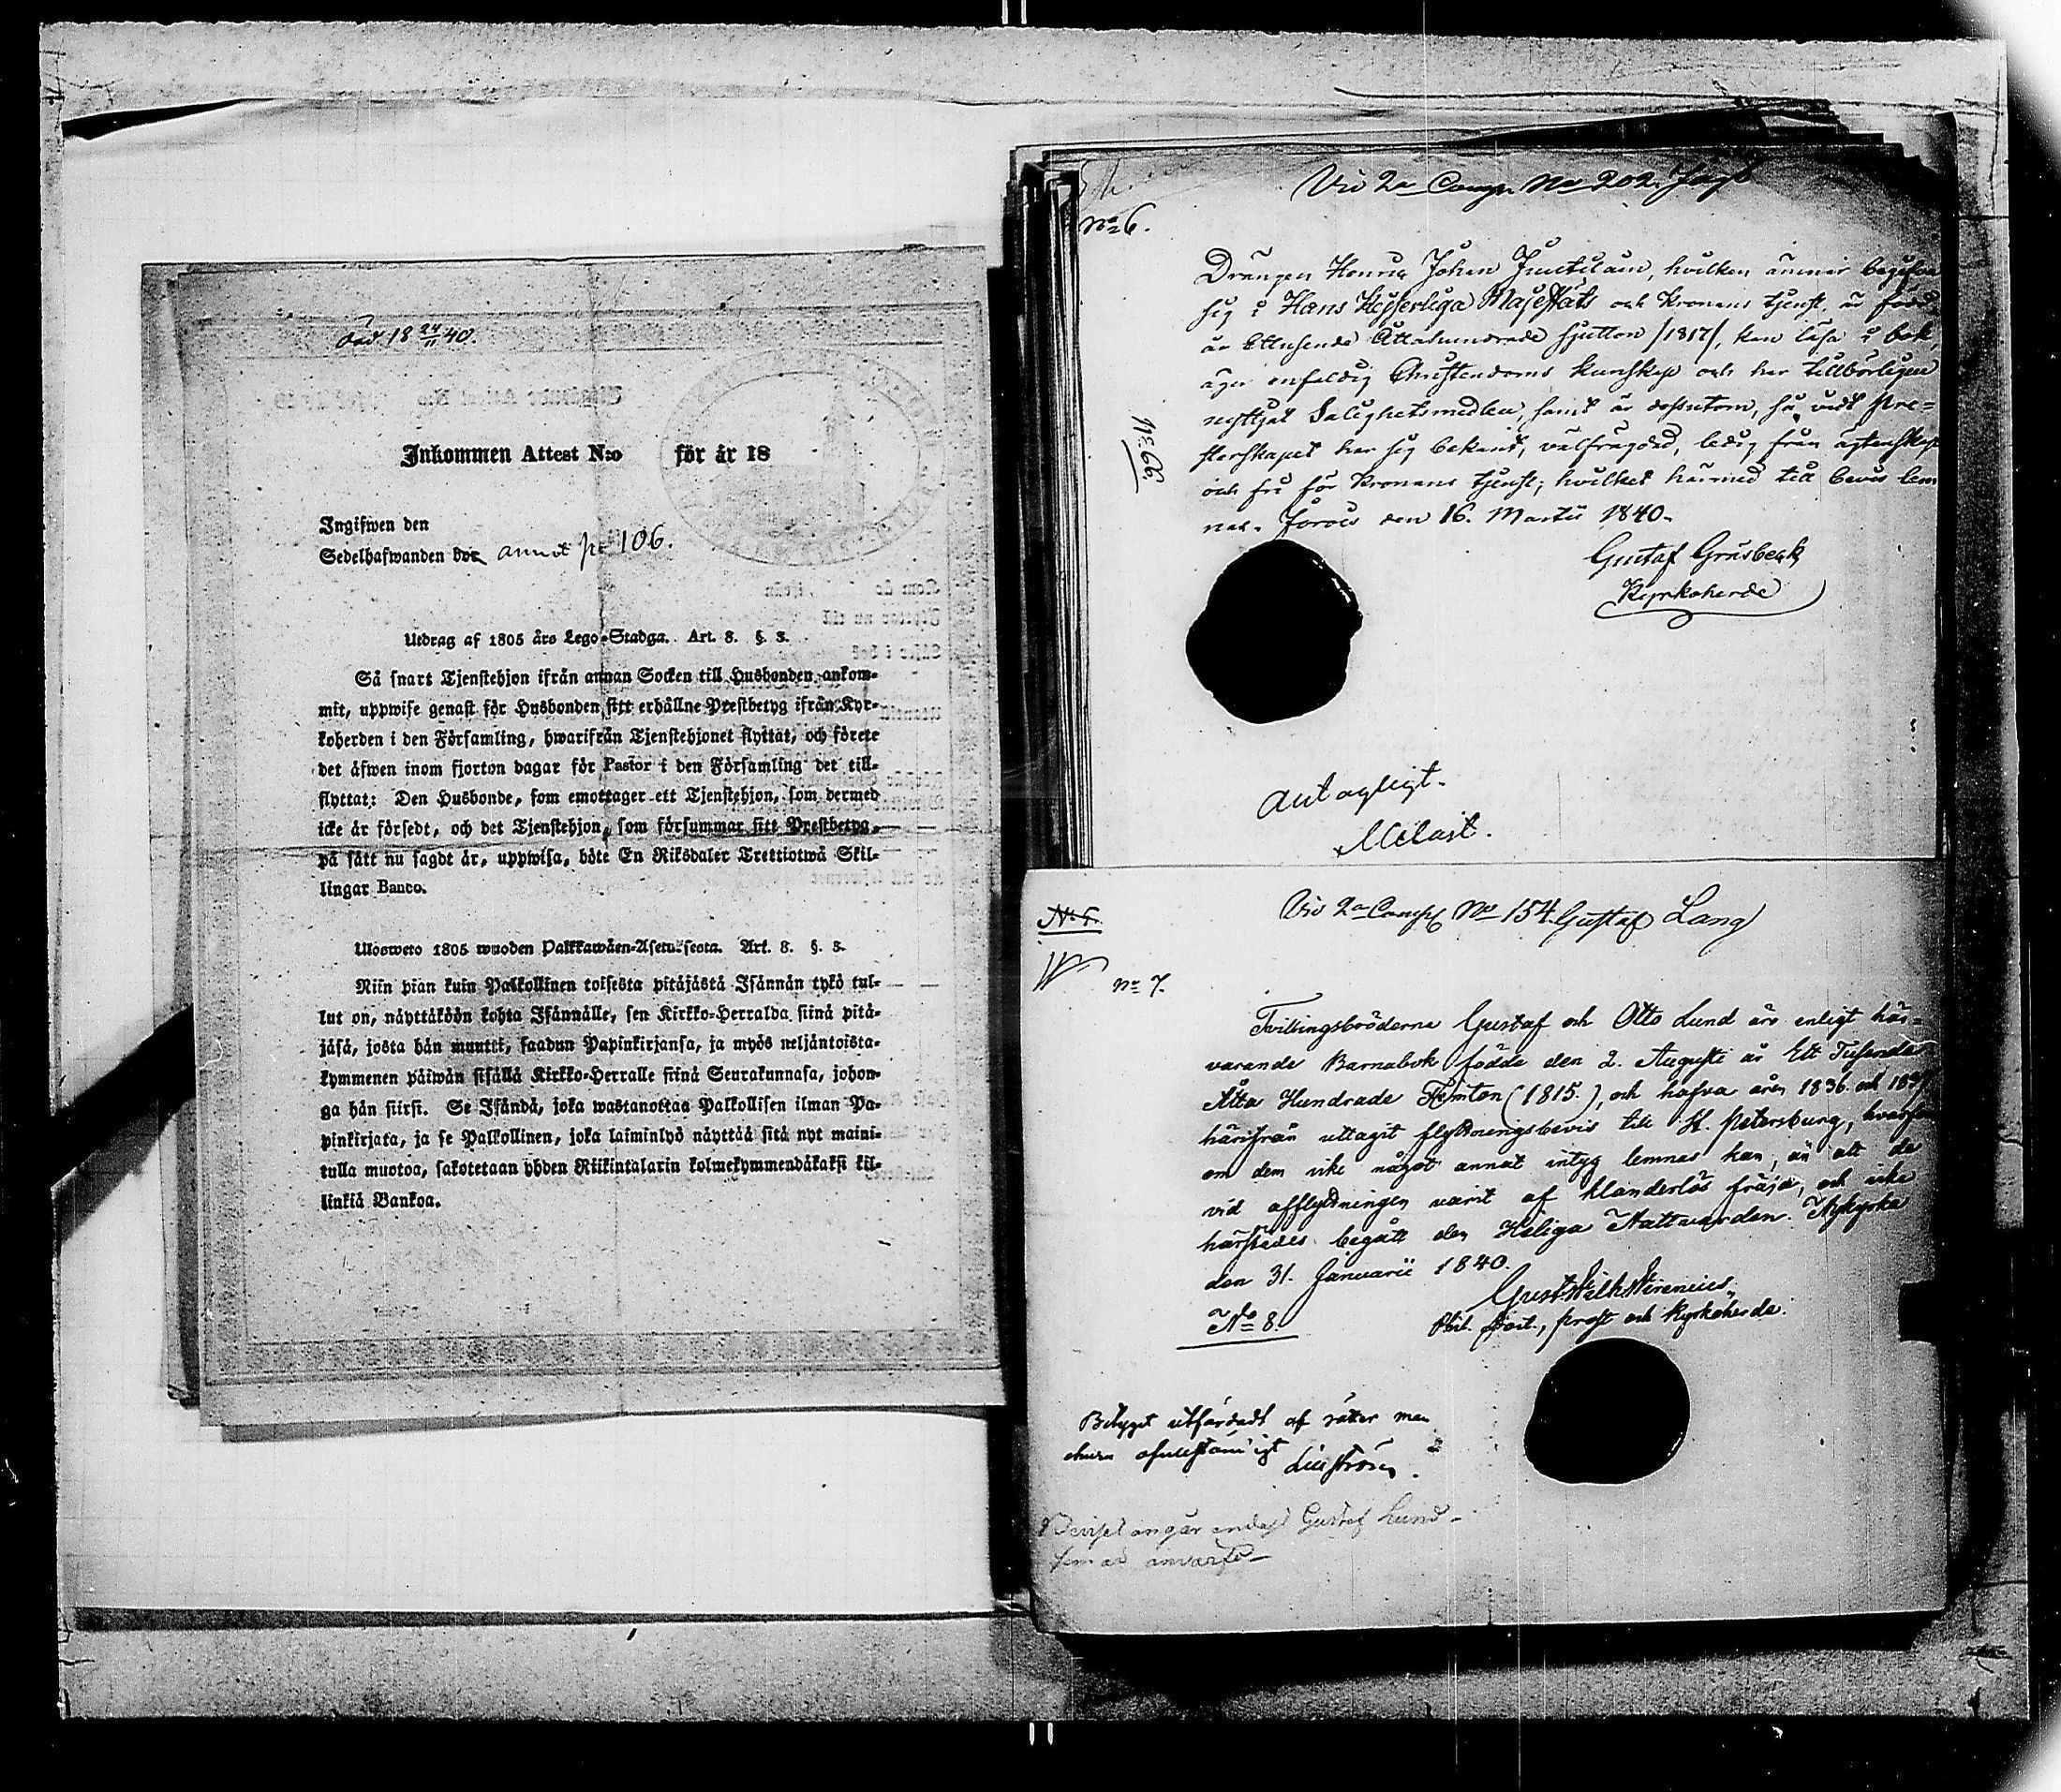 Inkommen Attest N:o för år 18
Ingifwen den
Sedelhafwanden bor annot pr 106.
Utdrag af 1805 års Lego-Stadga. Art. 8. §. 3.
Så snart Tjenstehjon ifrån annan Socken till Husbonden ankom-
mit, uppwise genast för Husbonden sitt erhållne Prestbetyg ifrån Kyr-
koherden i den Församling, hwarifrån Tjenstehjonet flyttat, och förete
det äfwen inom fjorton dagar för Pastor i den Församling det till-
flyttat: Den Husbonde, som emottager ett Tjenstehjon, som dermed
icke är försedt, och det Tjenstehjon, som försummar sitt Prestbetyg,
på sätt nu sagdt är, uppwisa, böte En Riksdaler Trettiotwå Skil-
lingar Banco.
Ulosweto 1805 wuoden Palkkawäen-Asetuksesta. Art. 8. §. 3.
Niin pian kuin Palkollinen toisesta pitäjästä Isännän tykö tul-
lut on, näyttäköön kohta Isännälle, sen Kirkko-Herralda siinä pitä-
jäsä, josta hän muutti, saadun Papinkirjansa, ja myös neljäntoista-
kymmenen päiwän sisällä Kirkko-Herralle siinä Seurakunnasa, johon-
ga hän siirsi. Se Isändä, joka wastanottaa Palkollisen ilman Pa-
pinkirjata, ja se Palkollinen, joka laiminlyö näyttää sitä nyt maini-
tulla muotoa, sakotetaan yhden Riikintalarin kolmekymmendäkaksi kil-
linkiä Bankoa.
Vid 2a Comp. No 202.
No 6.
Drängen Henric Johan, hvilken ämnar begifva
sig i Hans Kejserliga Majestäts och Kronans tjenst, är född
år Ettusende Åttahundrade sjutton /1817/, kan läsa i bok,
äger enfaldig Christendoms kunskap och har tillbörligen
nyttjat Salighetsmedlen, samt är dessutom, så vidt Pre=
sterskapet har sig bekant, välfrägdad, ledig från äktenskap
och fri för Kronans tjenst; hvilket härmed till bevis lem
nas. Jorois den 16. Martii 1840.
No 66.
Gustaf
Kyrkoherde
Antagligt.
Vid 2a Comp No 154. Gustaf Lang
No 7.
Tvillingsbröderne Gustaf och Otto Lund äro enligt här=
varande Barnabok födde den 2. Augusti år Ett Tusende
Åtta Hundrade Femton (1815.), och hafva åren 1836 och
härifrån uttagit flyttningsbevis till St. Petersburg, hvarföre
om dem icke något annat intyg lemnas kan, än att de
vid afflyttningen varit af klanderlös fräjd, och icke
härstädes begått den Heliga Nattvarden. Nykyrka
den 31. Januarii 1840.
Gust. Wilh.
prost och Kyrkoherde.
No 8.
Betyget utfärdadt af rätter man
Beviset angår endast Gustaf Lund